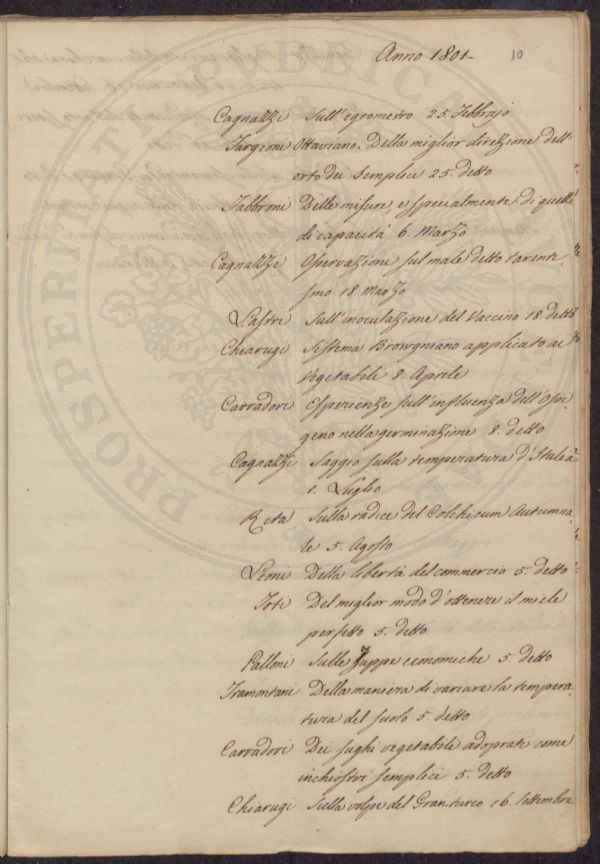 Anno 1801-
10
Cagnazzi Sull'igrometro 25. Febbrajo
Targioni Ottaviano. Della miglior direzione dell'
orto dei Semplici 25. detto
Fabbroni Delle misure, e specialmente di quelle
di capacità 6. Marzo
Cagnazzi Osservazioni sul male detto tarenti
smo 18 Marzo
Lastri Sull'inoculazione del Vaccino 18 detto
Chiarugi Sistema Browgniano applicato ai
Vegetabili 8. Aprile
Carradori Esperienze sull'influenza dell'Ossi-
geno nella germinazione 8. detto
Cagnazzi Saggio sulla temperatura d'Italia
1. Luglio
Sulla radice del Colchicum Autumna-
le 5. Agosto
Della libertà del commercio 5. detto
Del miglior modo d'ottenere il miele
perfetto 5. detto
Palloni Sulle Zuppe economiche 5. detto
Tramontani Della maniera di variare la tempera-
tura del suolo 5. detto
Carradori Dei sughi vegetabili adoprati come
inchiostri semplici 5. detto
Chiarugi Sulla volpe del Granturco 16. Settembre
PROSPERITATI PUBLICAE